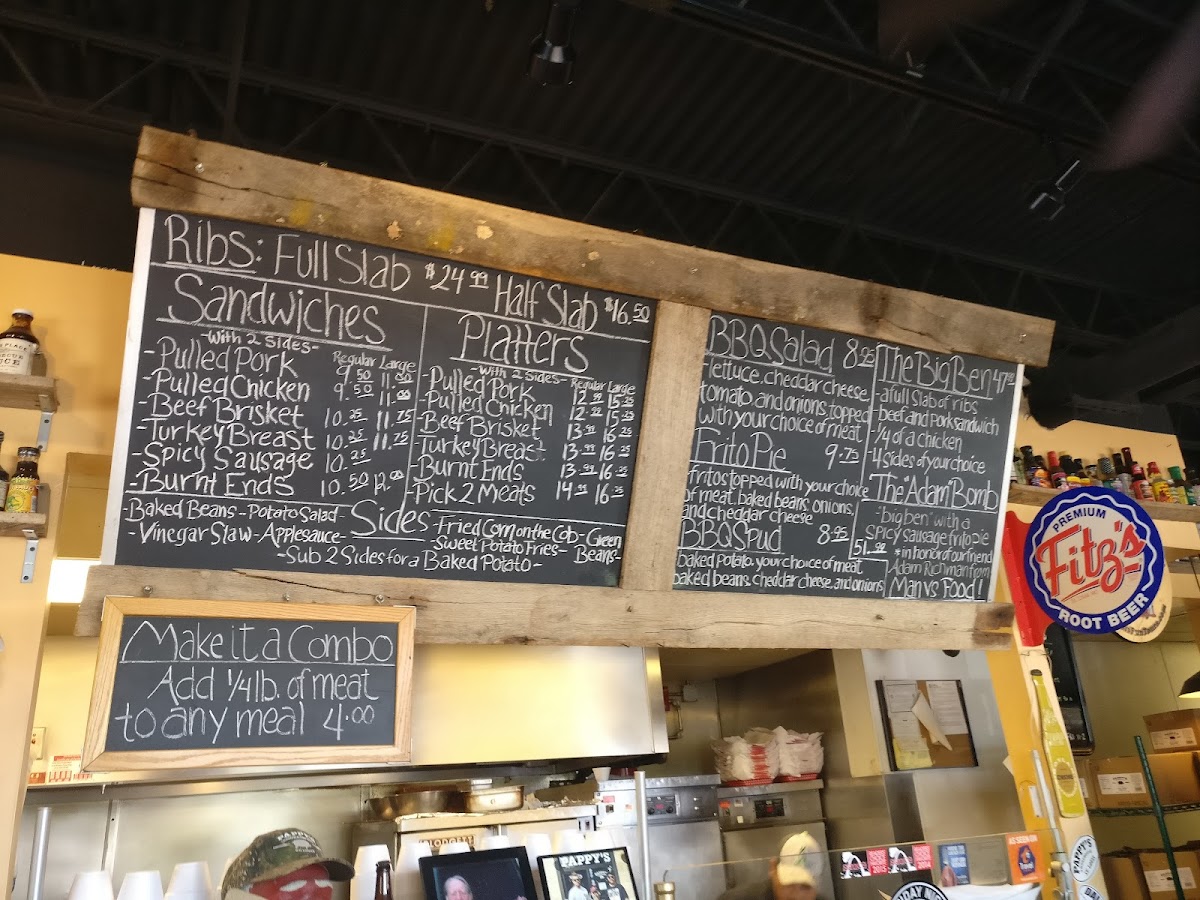 Ribs: Full Slab $24.99 Half Slab $16.50
Sandwiches
-with 2 sides-
Regular Large
-Pulled Pork 9.50 11.00
-Pulled Chicken 9.50 11.00
-Beef Brisket 10.25 11.75
-Turkey Breast 10.25 11.75
-Spicy Sausage 10.25
-Burnt Ends 10.50 12.00
Platters
-with 2 sides-
Regular Large
-Pulled Pork 12.99 15.25
-Pulled Chicken 12.99 15.25
-Beef Brisket 13.99 16.25
-Turkey Breast 13.99 16.25
-Burnt Ends 13.99 16.25
-Pick 2 Meats 14.99 16.25
Sides
-Baked Beans - Potato Salad-
-Vinegar Slaw - Applesauce-
-Fried Corn on the Cob - Green Beans-
Sweet Potato Fries-
-Sub 2 Sides for a Baked Potato-
BBQ Salad 8.95
lettuce, cheddar cheese
tomato, and onions, topped
with your choice of meat
Frito Pie 9.75
fritos topped with your choice
of meat, baked beans, onions,
and cheddar cheese
BBQ Spud 8.95
baked potato, your choice of meat
baked beans, cheddar cheese, and onions
The Big Ben 47.99
-a full slab of ribs
-beef and pork sandwich
-1/4 of a chicken
-4 sides of your choice
The "Adam Bomb"
51.99
-"big ben" with a
spicy sausage frito pie
*in honor of our friend
Adam Richman from
Man vs. Food!
Make it a Combo
Add 1/4 lb. of meat
to any meal 4.00
PREMIUM
Fitz's
ROOT BEER
PAPPY'S
PAPPY'S